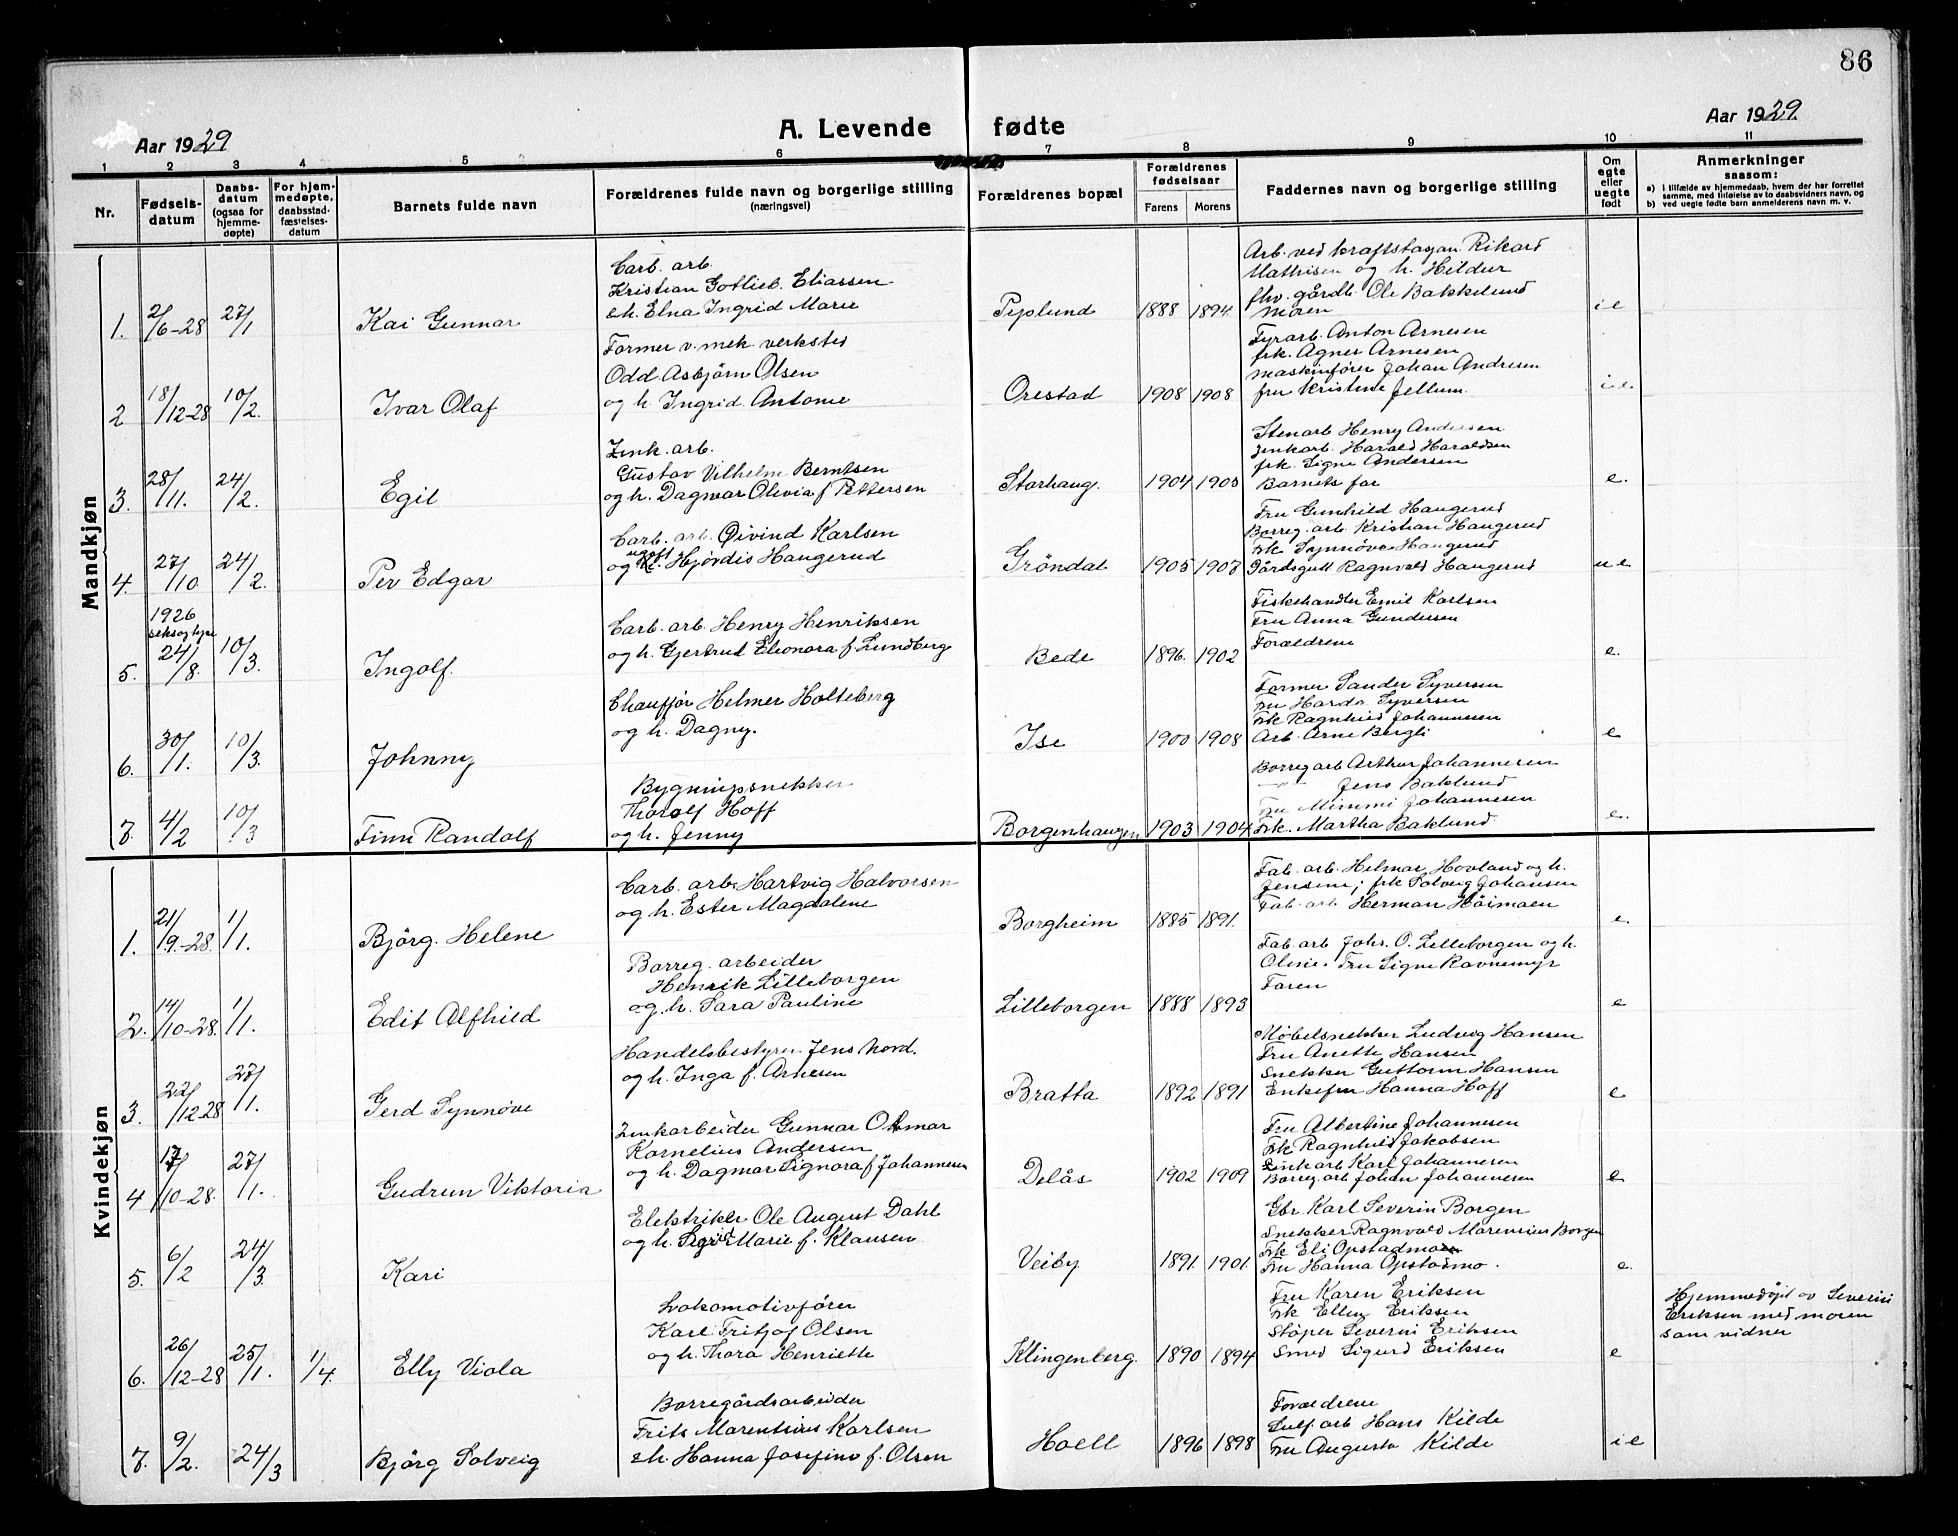 86
Aar 1929
A. Levende fødte
Aar 1929.
1 2 3 4 5 6 7 8 9 10 11
Nr.
Fødsels-
datum
Daabs-
datum
(ogsaa for
hjemme-
døpte)
For hjem-
medøpte,
daabsstad-
fæstelses-
datum
Barnets fulde navn
Forældrenes fulde navn og borgerlige stilling
(næringsvei)
Forældrenes bopæl
Forældrenes
fødselsaar
Farens
Morens
Faddernes navn og borgerlige stilling
Om
egte
eller
uegte
født
Anmerkninger
saasom:
a) i tilfælde av hjemmedaab, hvem der har forrettet
samme, med tilføielse av to daabsvidners navn, og
b) ved uegte fødte barn anmelderens navn m. v.
Mandkjøn
1. 2/6-28 27/1 Kai Gunnar
Carb. arb.
Kristian Gotlieb Eliassen
&h. Elna Ingrid Marie
Peplund 1888 1894
Arb. ved kraftstasjon Rikard
Mathisen og h. Hildur
fhv. gårdb. Ole Bakkelund
Moren
i e
2 18/12-28 10/2. Ivar Olaf
Former v. mek. verksted
Odd Asbjørn Olsen
og h. Ingrid Antonie
Orestad 1908 1908
Fyrarb. Anton Arnesen
frk. Agnes Arnesen
Maskinfører Johan Andresen
fru Kristine Jellum.
i e.
3. 28/11. 24/2. Egil
Zink. arb.
Gustav Vilhelm Berntsen
og h. Dagmar Olivia f Pettersen
Storhaug. 1904 1905
Stenarb Henry Andersen
Zinkarb. Harald Haraldsen
frk. Signe Andersen
Barnets far
e.
4. 27/10 24/2. Per Edgar
Carb. arb. Øivind Karlsen
og ugift Hjørdis Haugerud
Grøndal 1905 1907
Fru Gunhild Haugerud
Borreg. arb. Kristian Haugerud
Frk Synnøve Haugerud
Gårdsgutt Ragnvald Haugerud
u e
5. 1926
seksogtyve
24/8. 10/3. Ingolf.
Carb. arb. Henry Henriksen
og h. Gjertrud Eleonora f Lundberg
Bede 1896. 1902
Fiskehandler Emil Karlsen
Fru Anna Gundersen
Forældrene
e.
6. 30/1. 10/3. Johnny
Chauffør Helmer Holteberg
og h. Dagny.
Ise 1900 1908
Former Sander Syversen
Fru Harda Syversen
Frk Ragnhild Johannesen
Arb. Arne Bergli
e
7. 4/2 10/3 Finn Randolf
Bygningssnekker
Thorolf Hoff
og h. Jenny
Borgenhaugen 1903 1904
Borregarb Arthur Johannesen
— " — Jens Baklund
Fru Mimmi Johannesen
Frk. Martha Baklund
e.
Kvindekjøn
1. 21/9.-28. 1/1. Bjørg. Helene
Carb. arb. Hartvig Halvorsen
og h. Ester Magdalene
Borgheim 1885 1891.
Fab. arb. Helmar Hovland og h.
Jensine; frk Solveig Johansen
Fab. arb Herman Høimoen
e
2. 14/10-28. 1/1. Edit Alfhild
Borreg. arbeider
Henrik Lilleborgen
og h. Sara Pauline
Lilleborgen 1888 1893
Fab. arb Johs. O. Lilleborgen og h.
Oline. Fru Signe Ravnemyr
Faren
e
3. 22/12-28 27/1. Gerd Synnøve
Handelsbestyrer Jens Nord.
og h. Inga f. Arnesen
Bratta 1892 1891
Møbelsnekker Ludvig Hansen
Fru Anette Hansen
Snekker Guttorm Hansen
Enkefru Hanna Hoff
e
4 17/10-28. 27/1. Gudrun Viktoria
Zinkarbeider Gunnar Otmar
Kornelius Andersen
og h. Dagmar Signora f Johannesen
Delås 1902 1909
Fru Albertine Johannesen
Frk Ragnhild Jakobsen
Zinkarb Karl Johannesen
Borreg. arb Johan Johannesen
e
5. 6/2 24/3. Kari
Elektriker Ole August Dahl
og h. Sigrid Marie f. Klausen
Veiby 1891. 1901.
Gbr. Karl Severin Borgen
Snekker Ragnvald Marensius Borgen
Frk Eli Opstadmoen
Fru Hanna Opstadmo.
e.
6. 26/12-28 25/1. 1/4. Elly Viola
Lokomotivfører
Karl Fritjof Olsen
og h. Thora Henriette
Klingenberg. 1890 1894
Fru Karen Eriksen
Frk Ellen Eriksen
Støper Severin Eriksen
Smed Sigurd Eriksen
e
Hjemmedøpt av Severin
Eriksen med moren
som vidner
7. 9/2. 24/3 Bjørg Solveig
Borregårdsarbeider
Frits Marentsius Karlsen
&h. Hanna Josefine f. Olsen
Hoell 1896 1898
Forældrene
Sulf. arb Hans Kilde
Fru Augusta Kilde
i e